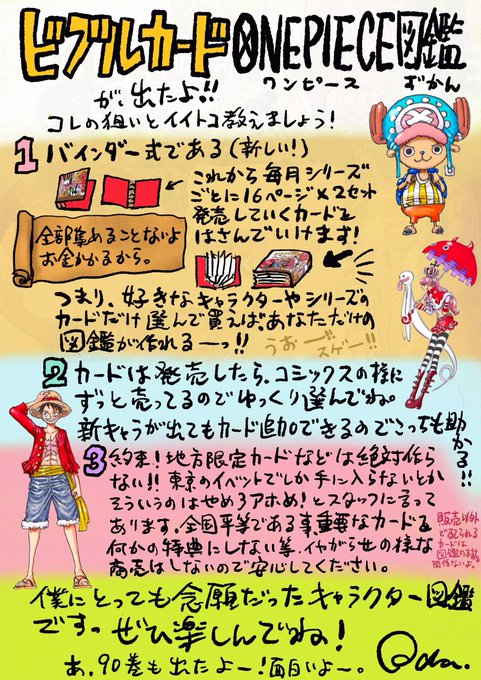 ビブルカードONEPIECE図鑑
ワンピース ずかん
が、出たよ!!
コレの狙いとイイトコ教えましょう!
1 バインダー式である(新しい!)
これから毎月シリーズ
ごとに16ページ×2セット
発売していくカードを
はさんでいけます!
全部集めることないよ
お金かかるから。
つまり、好きなキャラクターやシリーズの
カードだけ選んで買えば、あなただけの
図鑑が作れるーっ!!
うおーゴスゲー!!
2 カードは発売したら、コミックスの様に
ずっと売ってるのでゆっくり選んでね。
新キャラが出てもカード追加できるのでこっちも助かる!!
3 約束!地方限定カードなどは絶対作ら
ない!!東京のイベントでしか手に入らないとか
そういうのはやめろアホめ!とスタッフに言って
あります。全国平等である事、重要なカードを
何かの特典にしない等、イヤがらせの様な
商売はしないので安心してください。
販売以外
で配られる
カードは
図鑑の
関係ないよ。
僕にとっても念願だったキャラクター図鑑
ですっ ぜひ楽しんでね!
あ、90巻も出たよー!面白いよー。
Oda.